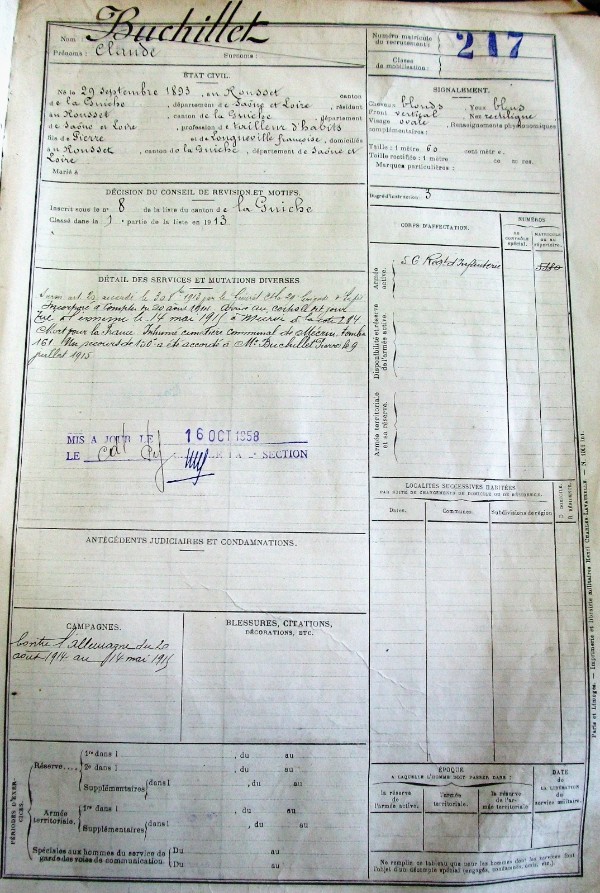 Nom : Buchillet
Prénoms : Claude Surnoms :
Numéro matricule du recrutement : 217
Classe de mobilisation :
ÉTAT CIVIL.
Né le 29 septembre 1893, en Rousset, canton
de la Guiche, département de Saône et Loire, résidant
au Rousset, canton de la Guiche, département
de Saône et Loire, profession de tailleur d'habits
fils de Pierre et de Longueville françoise, domiciliés
au Rousset, canton de la Guiche, département de Saône et
Loire
Marié à
DÉCISION DU CONSEIL DE REVISION ET MOTIFS.
Inscrit sous le n° 8 de la liste du canton de la Guiche
Classé dans la 1 partie de la liste en 1913
DÉTAIL DES SERVICES ET MUTATIONS DIVERSES
Incorporé à compter du 20 août 1914. Arrivé au corps
le 14 mai 1915 à Mécrin
Mort pour la France. Inhumé cimetière Communal de Mécrin, tombe
161. Un secours de 150 a été accordé à Mr Buchillet Pierre le 9
juillet 1915
MIS A JOUR LE 16 OCT 1958
LE SECTION
ANTÉCÉDENTS JUDICIAIRES ET CONDAMNATIONS.
CAMPAGNES.
Contre l'allemagne du 20
août 1914 au 14 mai 1915
BLESSURES, CITATIONS,
DÉCORATIONS, ETC.
PÉRIODES D'EXERCICES.
Réserve....
1re dans l , du au
2e dans l , du au
Supplémentaires dans l , du au
Armée territoriale.
1re dans l , du au
Supplémentaires dans l , du au
Spéciales aux hommes du service de garde des voies de communication.
Du au
Du au
SIGNALEMENT.
Cheveux blonds Yeux bleus
Front vertical Nez rectiligne
Visage ovale Renseignements physionomiques
complémentaires :
Taille : 1 mètre 60 centimètres.
Taille rectifiée : 1 mètre cm res.
Marques particulières :
Degré d'instruction : 3
CORPS D'AFFECTATION.
NUMÉROS
au contrôle spécial.
matricule ou au répertoire.
Armée active.
56 Régt d'Infanterie
Disponibilité et réserve de l'armée active.
Armée territoriale et sa réserve.
LOCALITÉS SUCCESSIVES HABITÉES
PAR SUITE DE CHANGEMENTS DE DOMICILE OU DE RÉSIDENCE.
Dates.
Communes.
Subdivisions de région
D. domicile.
R. résidence.
ÉPOQUE
A LAQUELLE L'HOMME DOIT PASSER DANS :
la réserve de l'armée active.
l'armée territoriale.
la réserve de l'armée territoriale
DATE de LA LIBÉRATION du service militaire.
Ne remplir ce tableau que pour les hommes dont les services font
l'objet d'un décompte spécial (engagés, omis, etc.)
Paris et Limoges. — Imprimerie et librairie militaires Henri CHARLES-LAVAUZELLE